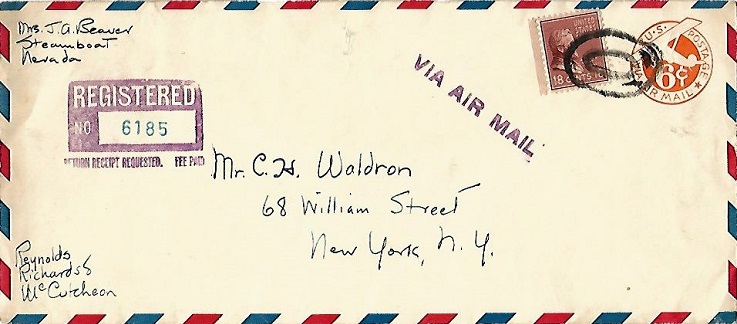 Mrs. J. A. Beaver
Steamboat
Nevada
REGISTERED
NO 6185
RETURN RECEIPT REQUESTED. FEE PAID
VIA AIR MAIL
UNITED STATES
18 CENTS 18
U.S. POSTAGE
6¢
AIR MAIL
Mr. C. H. Waldron
68 William Street
New York, N.Y.
Reynolds
Richards &
McCutcheon